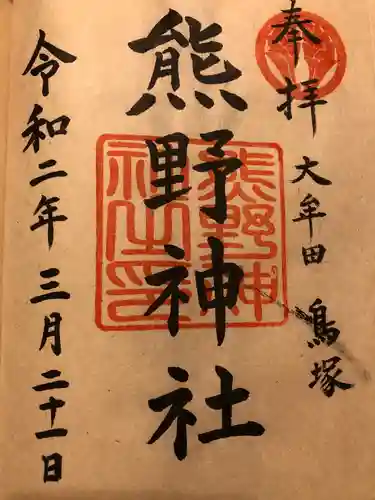 奉拝
大牟田 鳥塚
熊野神社
熊野神社之印
令和二年三月二十一日